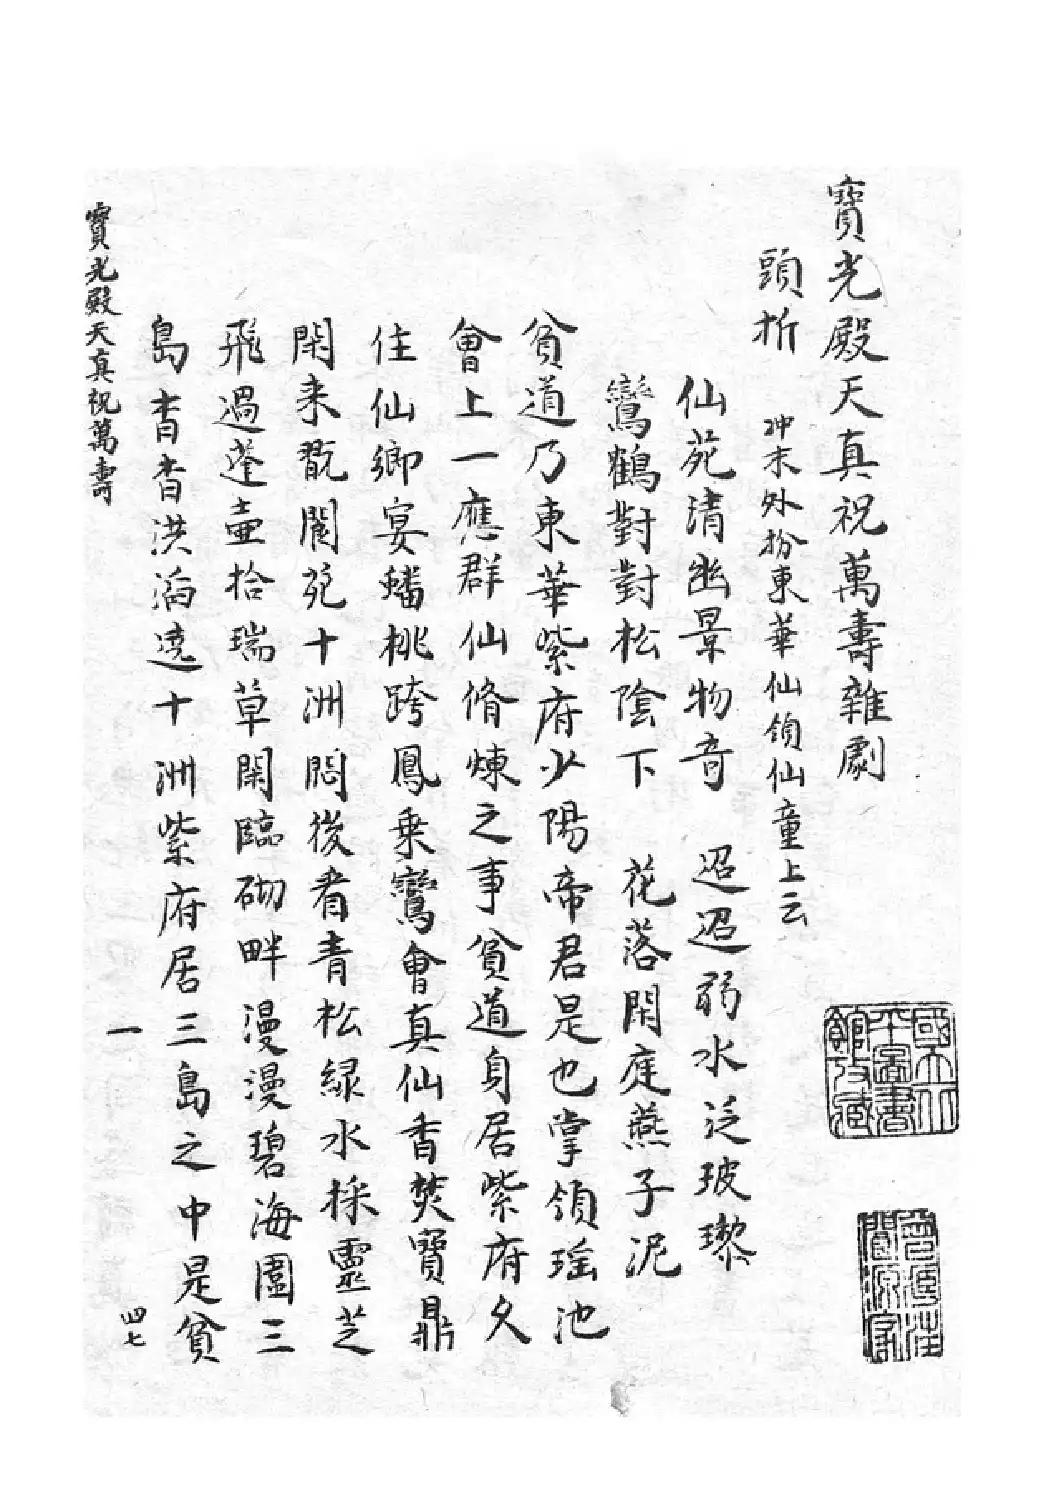 寶光殿天真祝萬壽雜劇
頭折
冲末外扮東華仙領仙童上云
仙苑清幽景物奇　迢迢弱水泛玻瓈
鸞鶴對對松陰下　花落閑庭燕子泥
貧道乃東華紫府少陽帝君是也掌領瑶池
會上一應群仙脩煉之事貧道身居紫府久
住仙鄉宴蟠桃跨鳳乗鸞會真仙香焚寶鼎
閑来翫閬苑十洲悶後看青松緑水採靈芝
飛過蓬壷拾瑞草閑臨砌畔漫漫碧海圍三
島杳杳洪濤遶十洲紫府居三島之中是貧
寶光殿天真祝萬壽
一
四七
國立北平圖書館收藏